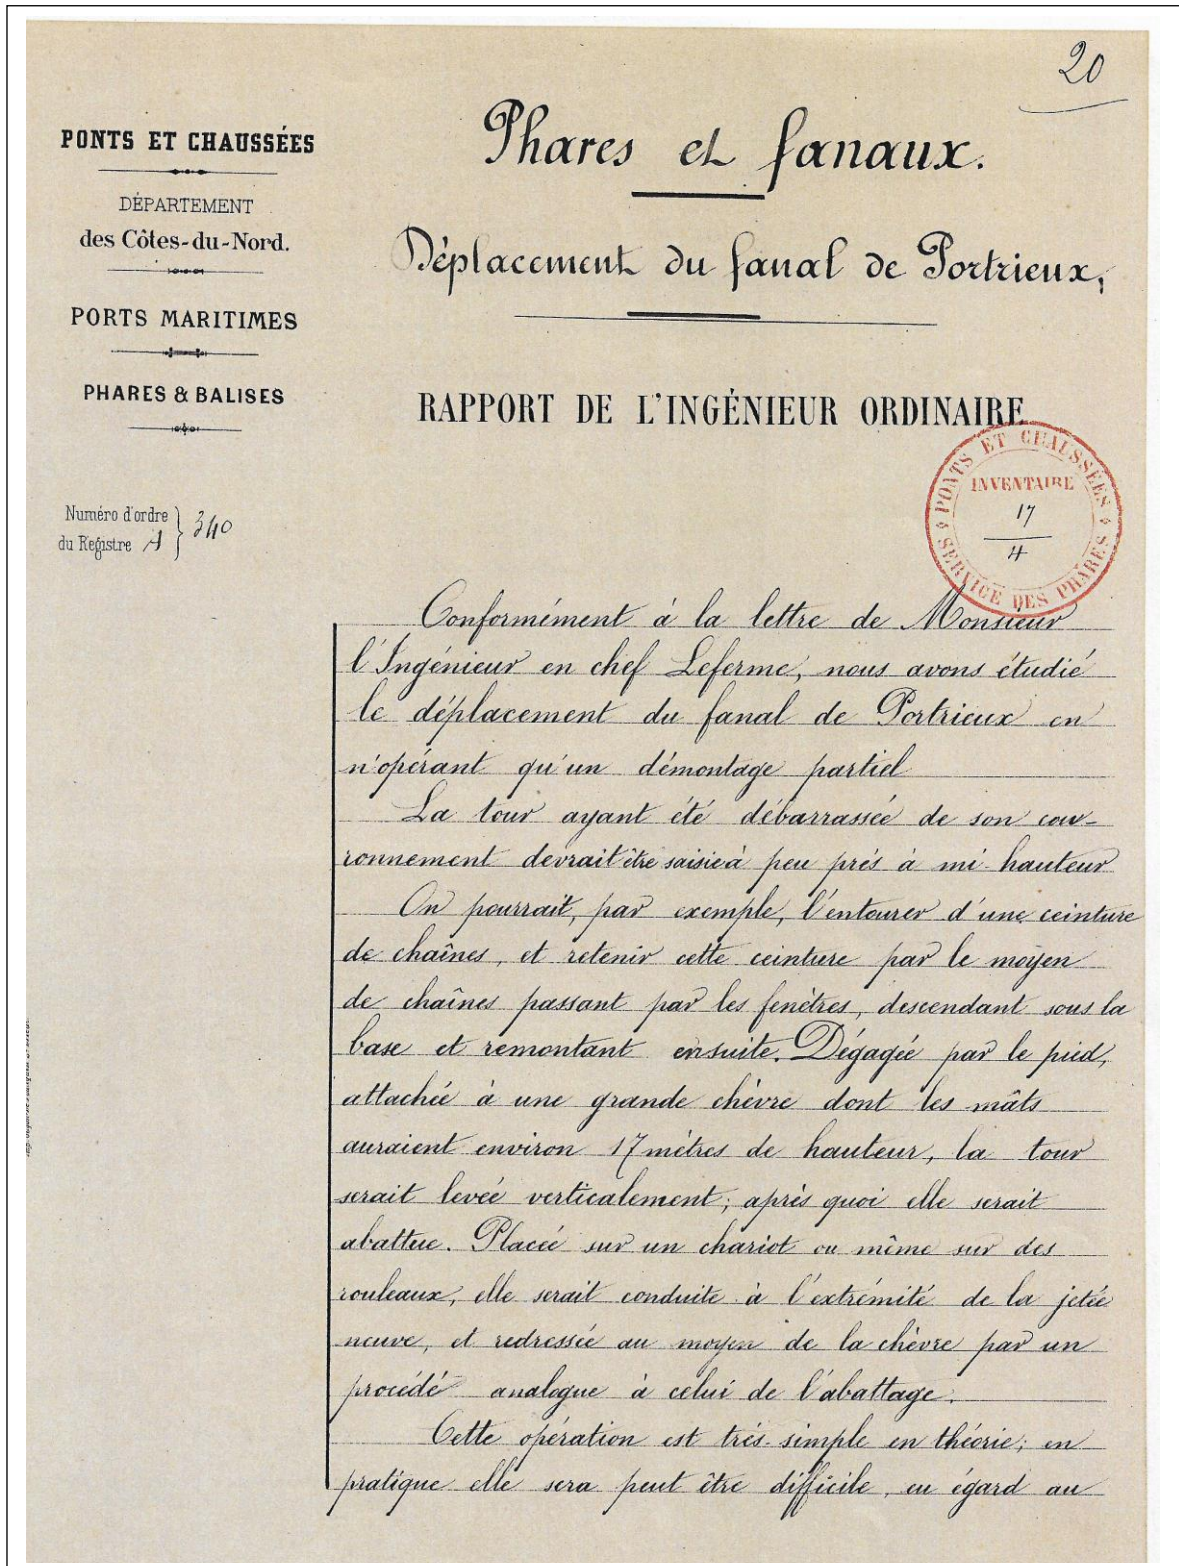 20
PONTS ET CHAUSSÉES
DÉPARTEMENT
des Côtes-du-Nord.
PORTS MARITIMES
PHARES & BALISES
Numéro d'ordre
du Registre A } 340
Phares et fanaux.
Déplacement du fanal de Portrieux,
RAPPORT DE L'INGÉNIEUR ORDINAIRE
PONTS ET CHAUSSÉES
INVENTAIRE
17
4
SERVICE DES PHARES
Conformément à la lettre de Monsieur
l'Ingénieur en chef Leferme, nous avons étudié
le déplacement du fanal de Portrieux en
n'opérant qu'un démontage partiel
La tour ayant été débarrassée de son cou-
ronnement devrait être saisie à peu près à mi-hauteur
On pourrait, par exemple, l'entourer d'une ceinture
de chaînes, et retenir cette ceinture par le moyen
de chaînes passant par les fenêtres, descendant sous la
base et remontant ensuite. Dégagée par le pied,
attachée à une grande chèvre dont les mâts
auraient environ 17 mètres de hauteur, la tour
serait levée verticalement; après quoi elle serait
abattue. Placée sur un chariot ou même sur des
rouleaux, elle serait conduite à l'extrémité de la jetée
neuve, et redressée au moyen de la chèvre par un
procédé analogue à celui de l'abattage.
Cette opération est très-simple en théorie; en
pratique elle sera peut être difficile, eu égard au